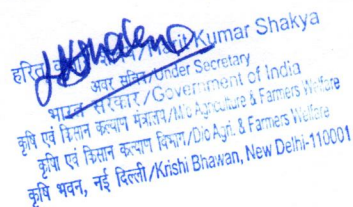 हरित Kumar Shakya
अवर सचिव/Under Secretary
भारत सरकार/Government of India
कृषि एवं किसान कल्याण मंत्रालय/M/o Agriculture & Farmers Welfare
कृषि एवं किसान कल्याण विभाग/D/o Agri. & Farmers Welfare
कृषि भवन, नई दिल्ली/Krishi Bhawan, New Delhi-110001